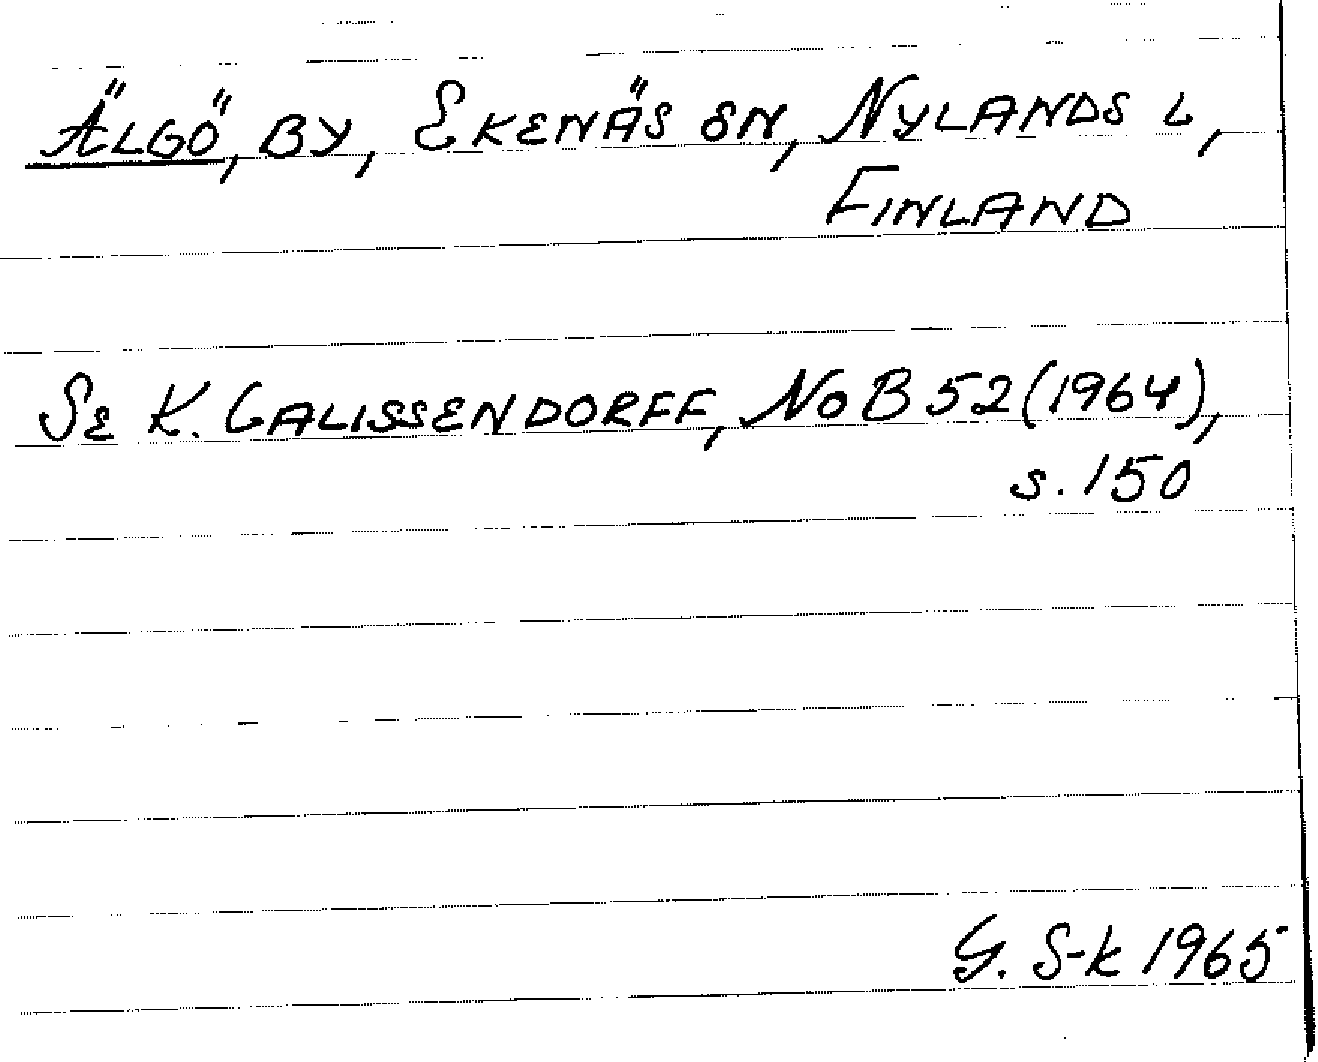 Älgö, by, Ekenäs sn, Nylands l,
Finland
Se K. Galissendorff, NoB 52 (1964),
s. 150
G. S-k 1965